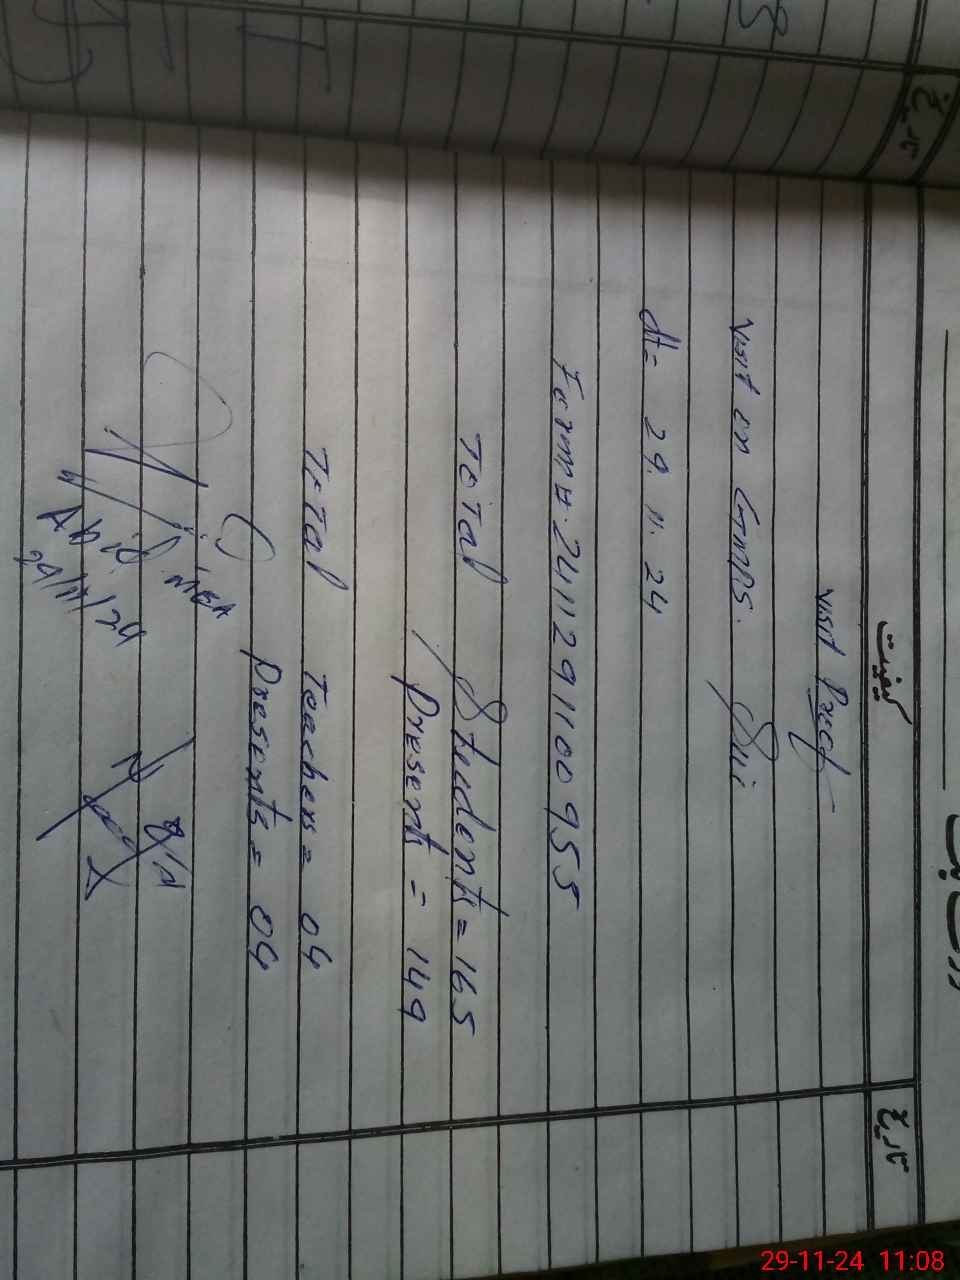 کیفیت
تاریخ
Visit Proof
Visit on GMPS. Sui
dt= 29.11.24
Form # 2411291100955
Total Students = 165
Present = 149
Total Teachers = 04
Presents = 04
Abid MEA
29/11/24
29-11-24 11:08